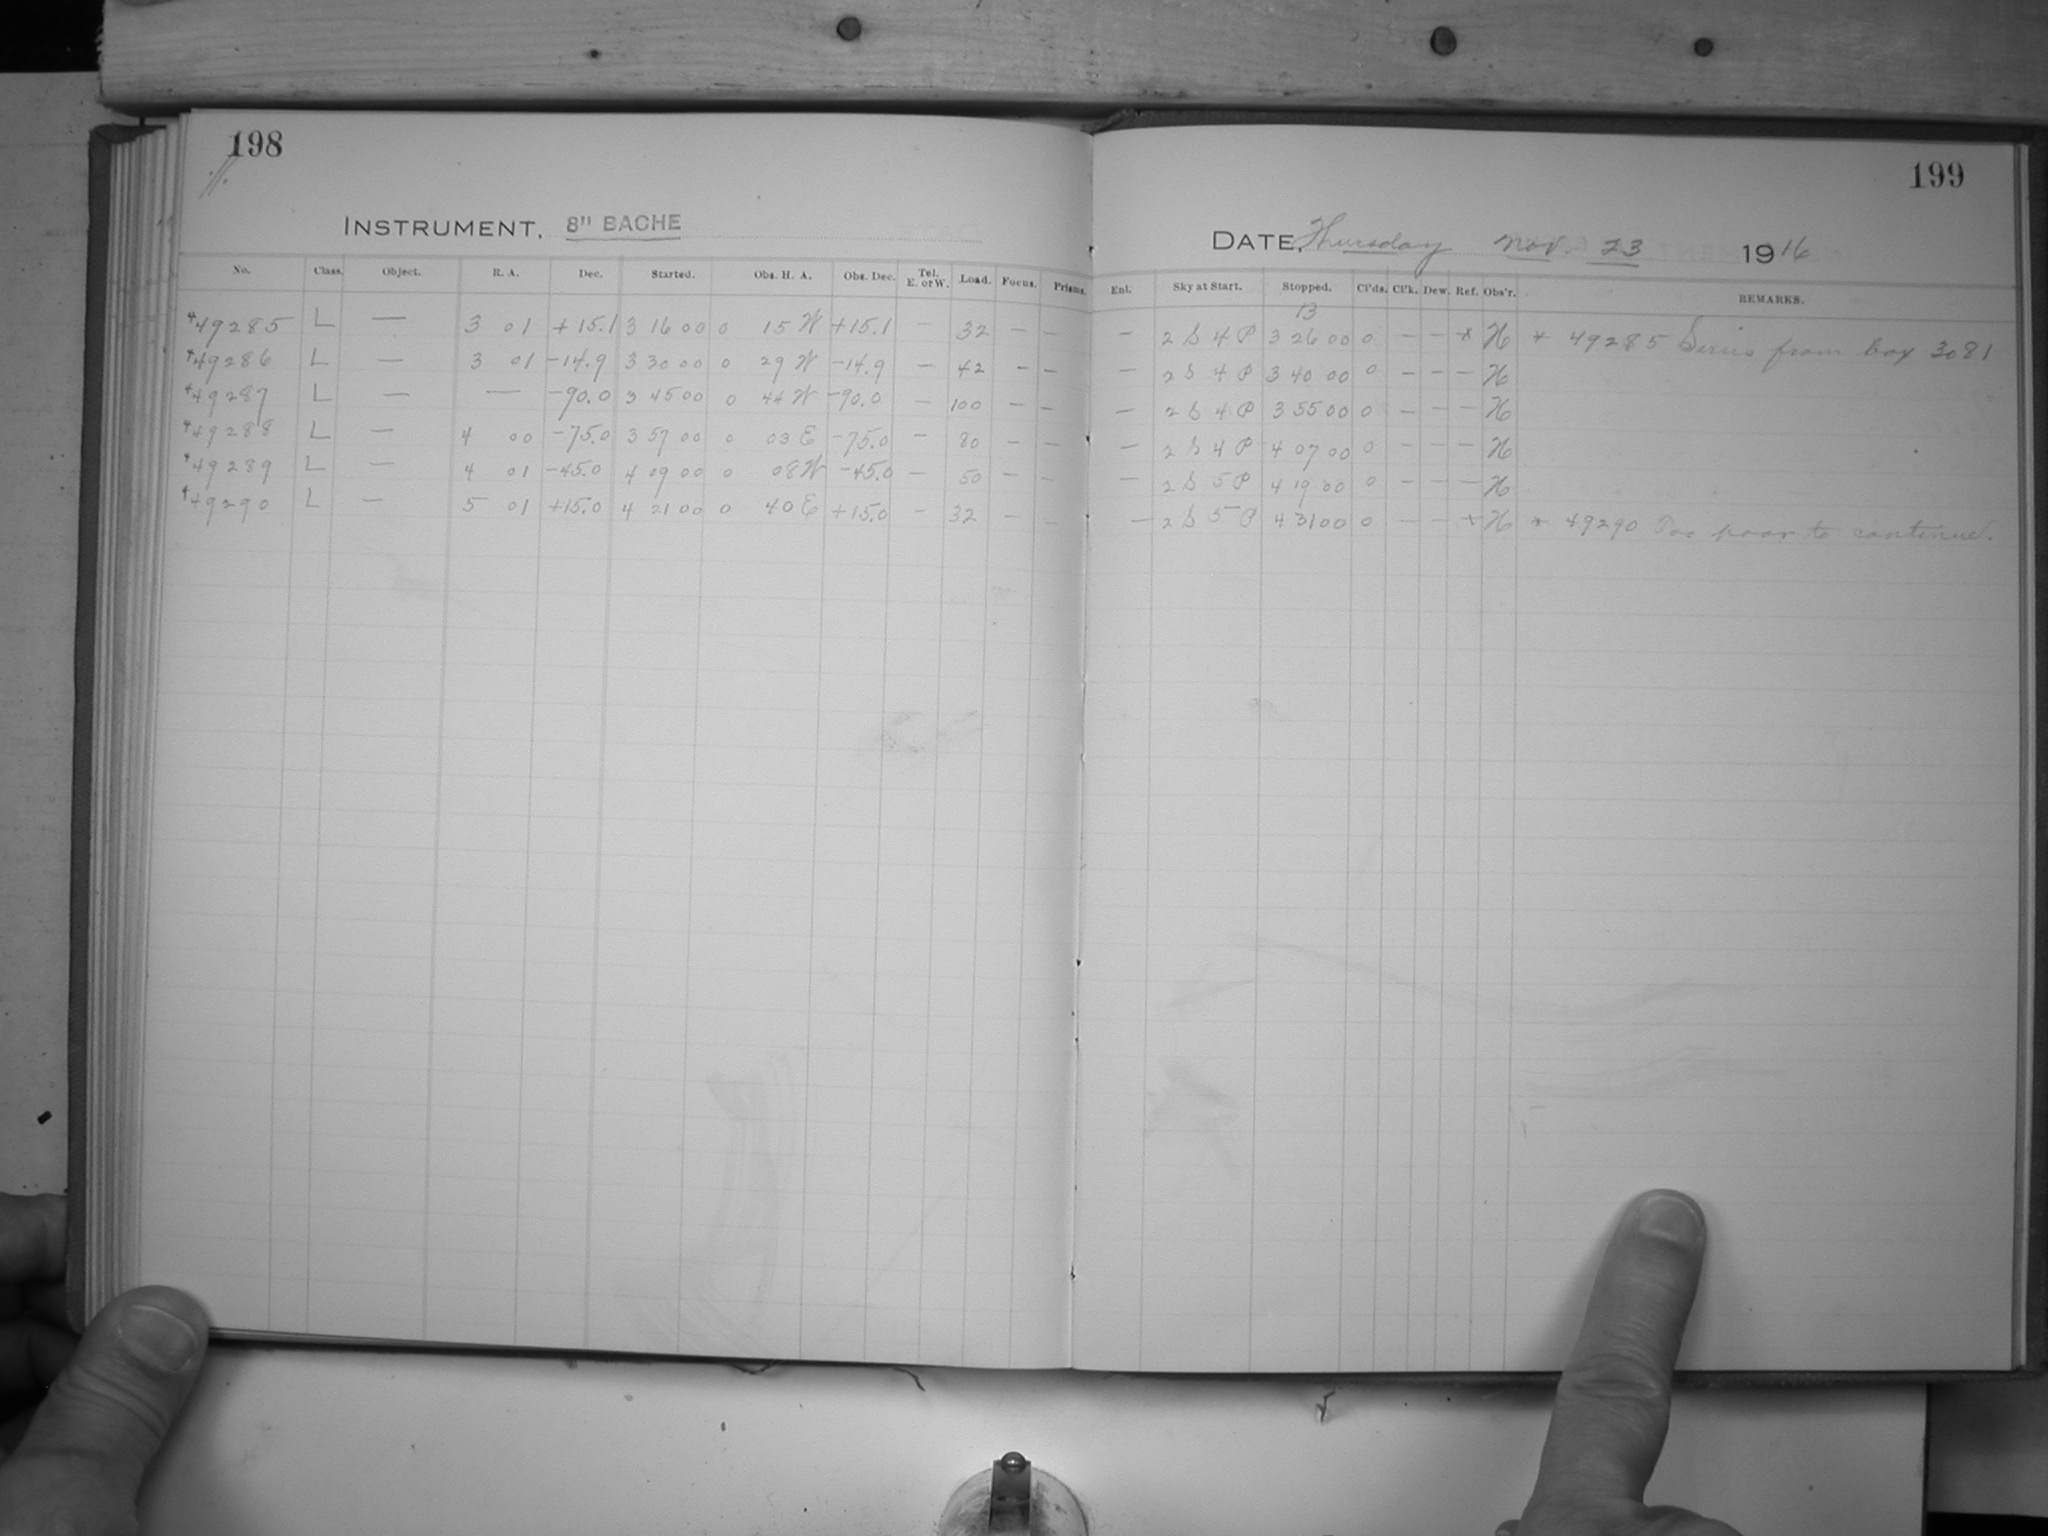 198
INSTRUMENT. 8" BACHE
No. Class. Object. R. A. Dec. Started. Obs. H. A. Obs. Dec. Tel. E. or W. Load. Focus. Prisms.
49285 L — 3 01 +15.1 3 16 00 0 15 W +15.1 — 32 — —
49286 L — 3 01 -14.9 3 30 00 0 29 W -14.9 — 42 — —
49287 L — — -90.0 3 45 00 0 44 W -90.0 — 100 — —
49288 L — 4 00 -75.0 3 57 00 0 03 E -75.0 — 80 — —
49289 L — 4 01 -45.0 4 09 00 0 08 W -45.0 — 50 — —
49290 L — 5 01 +15.0 4 21 00 0 40 E +15.0 — 32 — —
199
DATE. Thursday Nov. 23 1916
Enl. Sky at Start. Stopped. Cl'ds. Cl'k. Dew. Ref. Obs'r. REMARKS.
13
— 2 S 4 P 3 26 00 0 — — * H * 49285 Series from box 3081
— 2 S 4 P 3 40 00 0 — — — H
— 2 S 4 P 3 55 00 0 — — — H
— 2 S 4 P 4 07 00 0 — — — H
— 2 S 5 P 4 19 00 0 — — — H
— 2 S 5 P 4 31 00 0 — — * H * 49290 Too poor to continue.